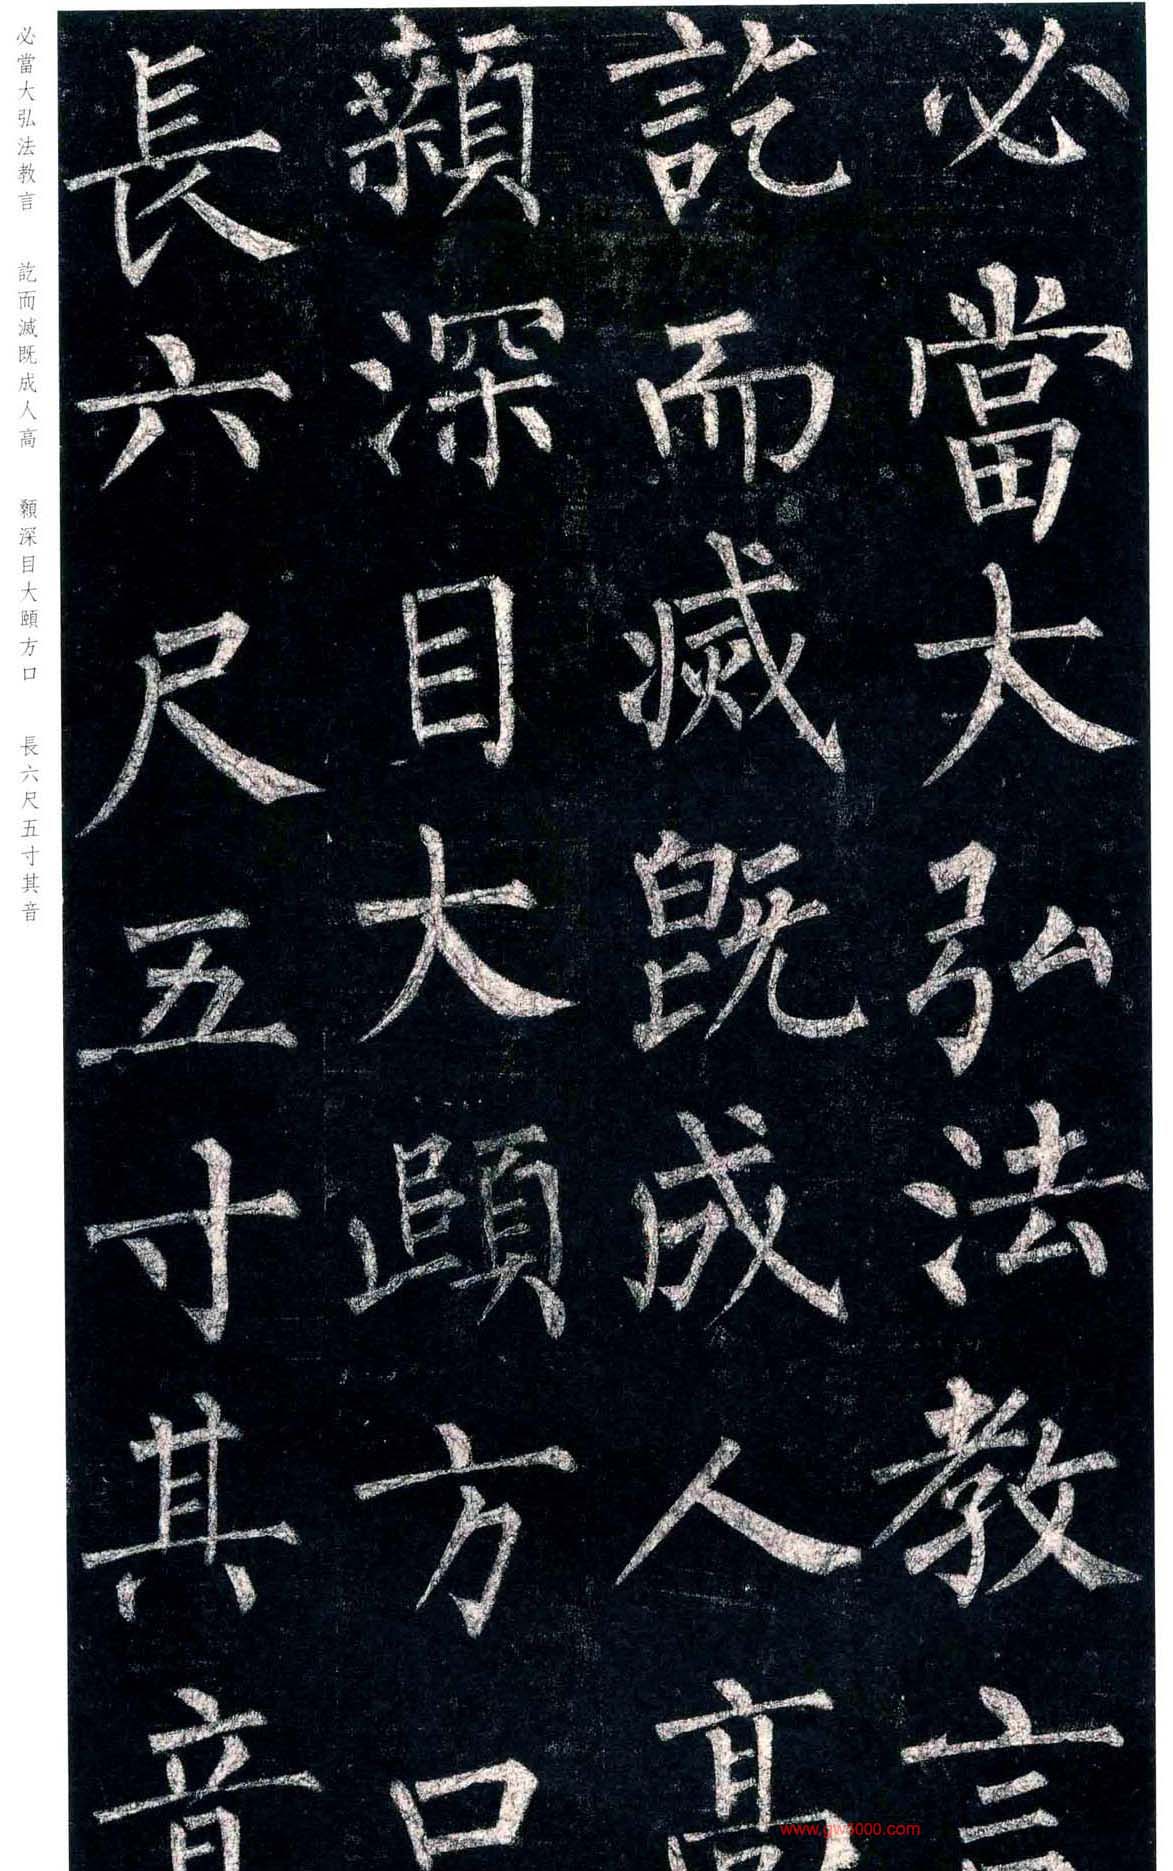 必當大弘法教言
訖而滅既成人高
顙深目大頤方口
長六尺五寸其音
必當大弘法教言 訖而滅既成人高 顙深目大頤方口 長六尺五寸其音
www.gw5000.com